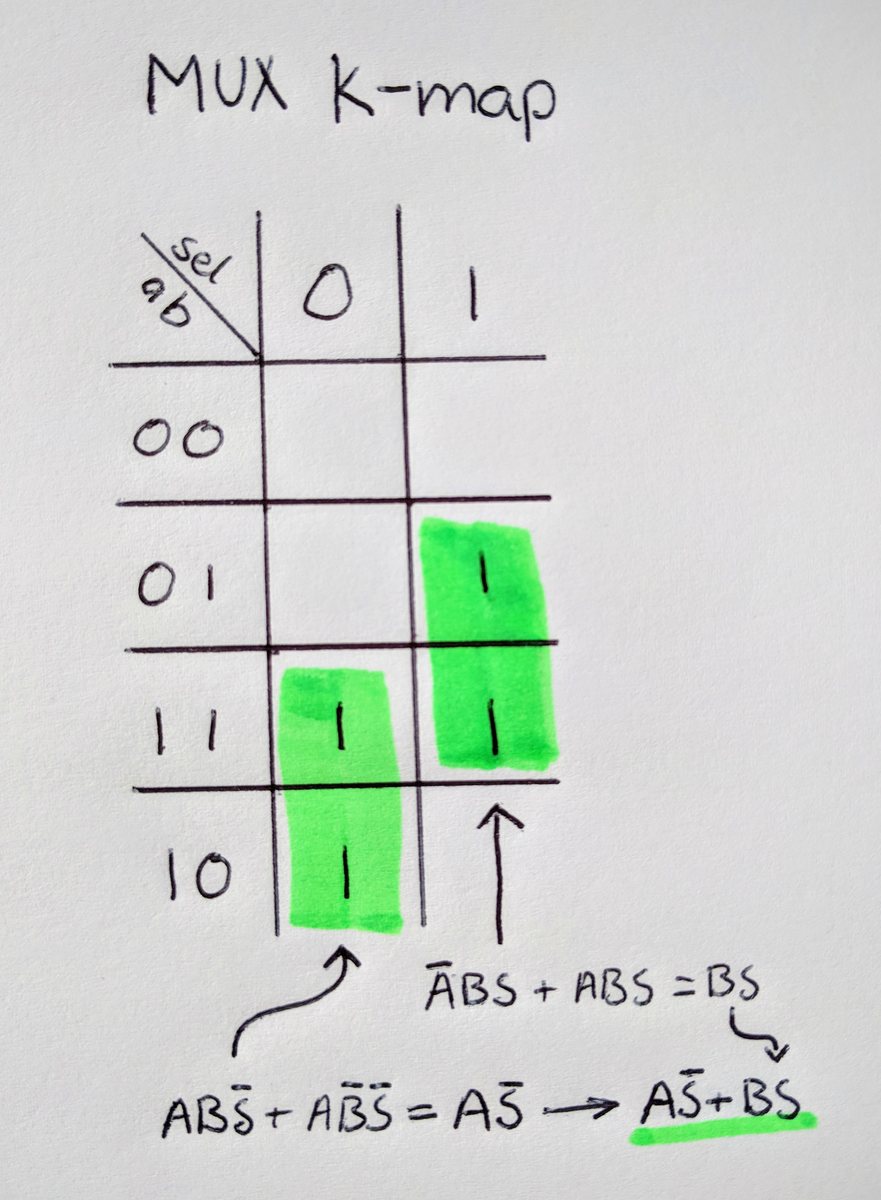 MUX K-map
sel
ab
0 1
00
01 1
11 1 1
10 1
ĀBS + ABS = BS
ABS̄ + AB̄S̄ = AS̄ → AS̄+BS